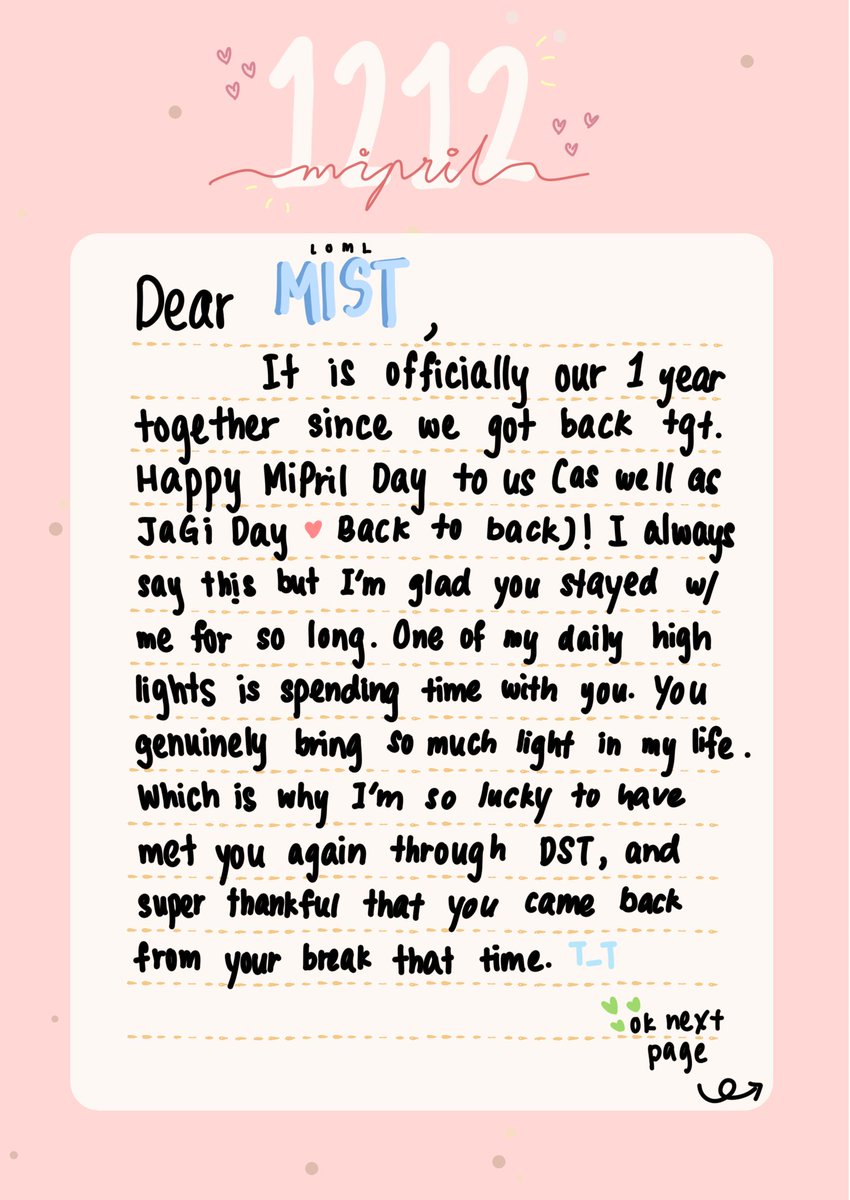 1212
mipril
LOML
Dear MIST,
It is officially our 1 year
together since we got back tgt.
Happy MiPril Day to us (as well as
JaGi Day ♥ Back to back)! I always
say this but I'm glad you stayed w/
me for so long. One of my daily high
lights is spending time with you. You
genuinely bring so much light in my life.
Which is why I'm so lucky to have
met you again through DST, and
super thankful that you came back
from your break that time. T_T
ok next
page